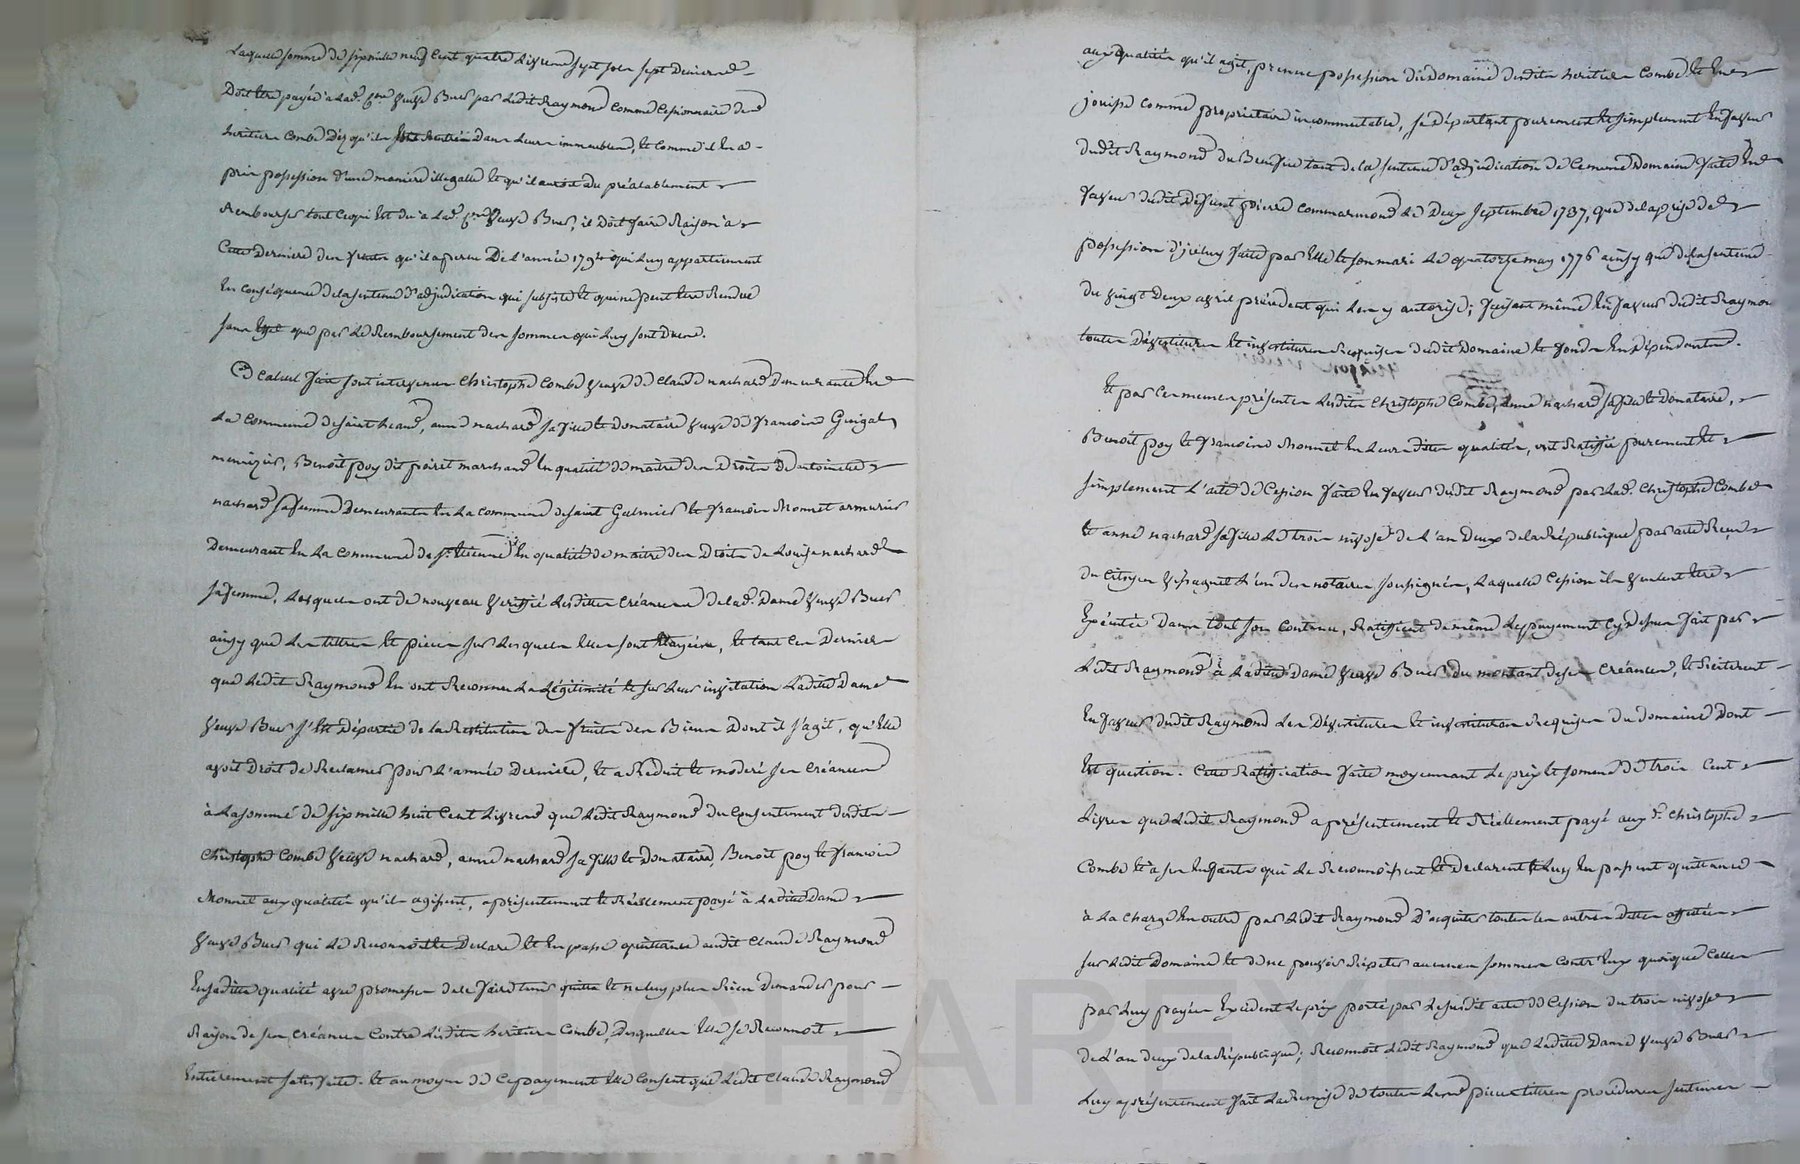 Laquelle somme de six mille neuf cent quatre livres sept sols sept deniers
Doit etre payée a lad. veuve Bues par ledit Raymond comme cessionnaire des
heritiers Combe dès qu'ils sont rentrés dans leurs immeubles, et comme il en a
pris possession d'une maniere illegalle et qu'il auroit du préalablement
Rembourser tout ce qui est du a lad. veuve Bues, il doit faire Raison a
Cette Derniere des fruits qu'il a percu De l'année 1792 qui luy appartiennent
En conséquence de la sentence d'adjudication qui subsiste et qui ne peut etre Rendue
sans que par le Remboursement des sommes qui luy sont Dues.
Ce calcul fait sont intervenus Christophe Combe veuve de Claude nachard Demeurante en
La commune de saint heand, anne nachard sa fille et donataire veuve de francois Guigal
menuzier, Benoit poy dit poiret marchand En qualité de maitre des Droits D'antoinette
nachard sa femme Demeurants En La commune de saint Galmier et francois Monnet armurier
Demeurant En La commune de st. Etienne En qualité de maitre des Droits de Louise nachard
sa femme, Lesquels ont de nouveau veriffié lesdittes créances de lad. Dame veuve Bues
ainsy que les tittres et pieces sur lesquels elles sont Etayées, et tant ces Derniers
que ledit Raymond En ont Reconnu La Légitimité et sur leur invitation Laditte Dame
veuve Bues s'est Départie de la Restitution des fruits des Biens Dont il s'agit, qu'Elle
avoit Droit de Reclamer pour L'année Derniere, et a Réduit et moderé ses Créances
à La somme de six mille huit Cent Livres que ledit Raymond du Consentement desdits
Christophe Combe veuve nachard, anne nachard sa fille et Donataire, Benoit poy et francois
Monnet aux qualités qu'ils agissent, a présentement et Réellement payé à Laditte Dame
veuve Bues qui Le Reconnoit Declare et En passe quittance audit Claude Raymond
En saditte qualité avec promesse de le faire tenir quitte et ne luy plus Rien Demander pour
Raison de ses créances Contre Lesdits heritiers Combe, Desquelles Elle se Reconnoit
Entierement satisfaite. Et au moyen de Ce payement Elle Consent que Ledit Claude Raymond
aux qualités qu'il agit, prenne possession du Domaine desdits heritiers Combe et En
jouisse comme propriétaire incommutable, se départant purement et simplement En faveur
dudit Raymond du Benefice tant de la sentence d'adjudication de Ce meme Domaine faite En
faveur dudit Defunt pierre Commarmond Le Deux septembre 1737, que de la prise de
possession d'jceluy faite par Elle et son mari Le quatorze may 1776 ainsy que de la sentence
du vingt Deux avril précedent qui les y autorise; faisant même En faveur dudit Raymon
toutes Dévestitures et investitures Requises dudit Domaine et fonds En Dépendants.
Et par ces memes présentes Lesdits Christophe Combe, anne nachard sa fille et Donataire,
Benoit poy et francois Monnet En leurs dites qualités, ont Ratiffié purement et
simplement L'acte de Cession faite En faveur dudit Raymond par lad. Christophe Combe
et anne nachard sa fille Le trois nivose De L'an Deux de la République par acte Reçu
du Citoyen L'un des notaires soussignés, Laquelle Cession ils veulent être
Exécutée Dans tout son contenu, Ratiffient de même Le payement Cy dessus fait par
Ledit Raymond à Laditte Dame veuve Bues du montant de ses Créances, et Reiterent
En faveur dudit Raymond Les Dévestitures et investitures Requises du domaine Dont
Est question. Cette Ratiffication faite moyennant Le prix et somme de trois Cent
Livres que Ledit Raymond a présentement et Réellement payé aux d. Christophe
Combe et à ses Enfants qui Le Reconnoissent et Declarent et Luy En passent quittance
à La charge En outre par Ledit Raymond D'acquiter toutes les autres dettes affectées
sur Ledit Domaine et de ne pouvoir Répéter aucunes sommes Contr'Eux quoique Celles
par Luy payées Excedent Le prix porté par Le susdit acte de Cession du trois nivose
de L'an deux de la République; Reconnoit Ledit Raymond que Laditte Dame veuve Bues
Luy a présentement fait La Remise de toutes Les pieces tittres procedures sentences